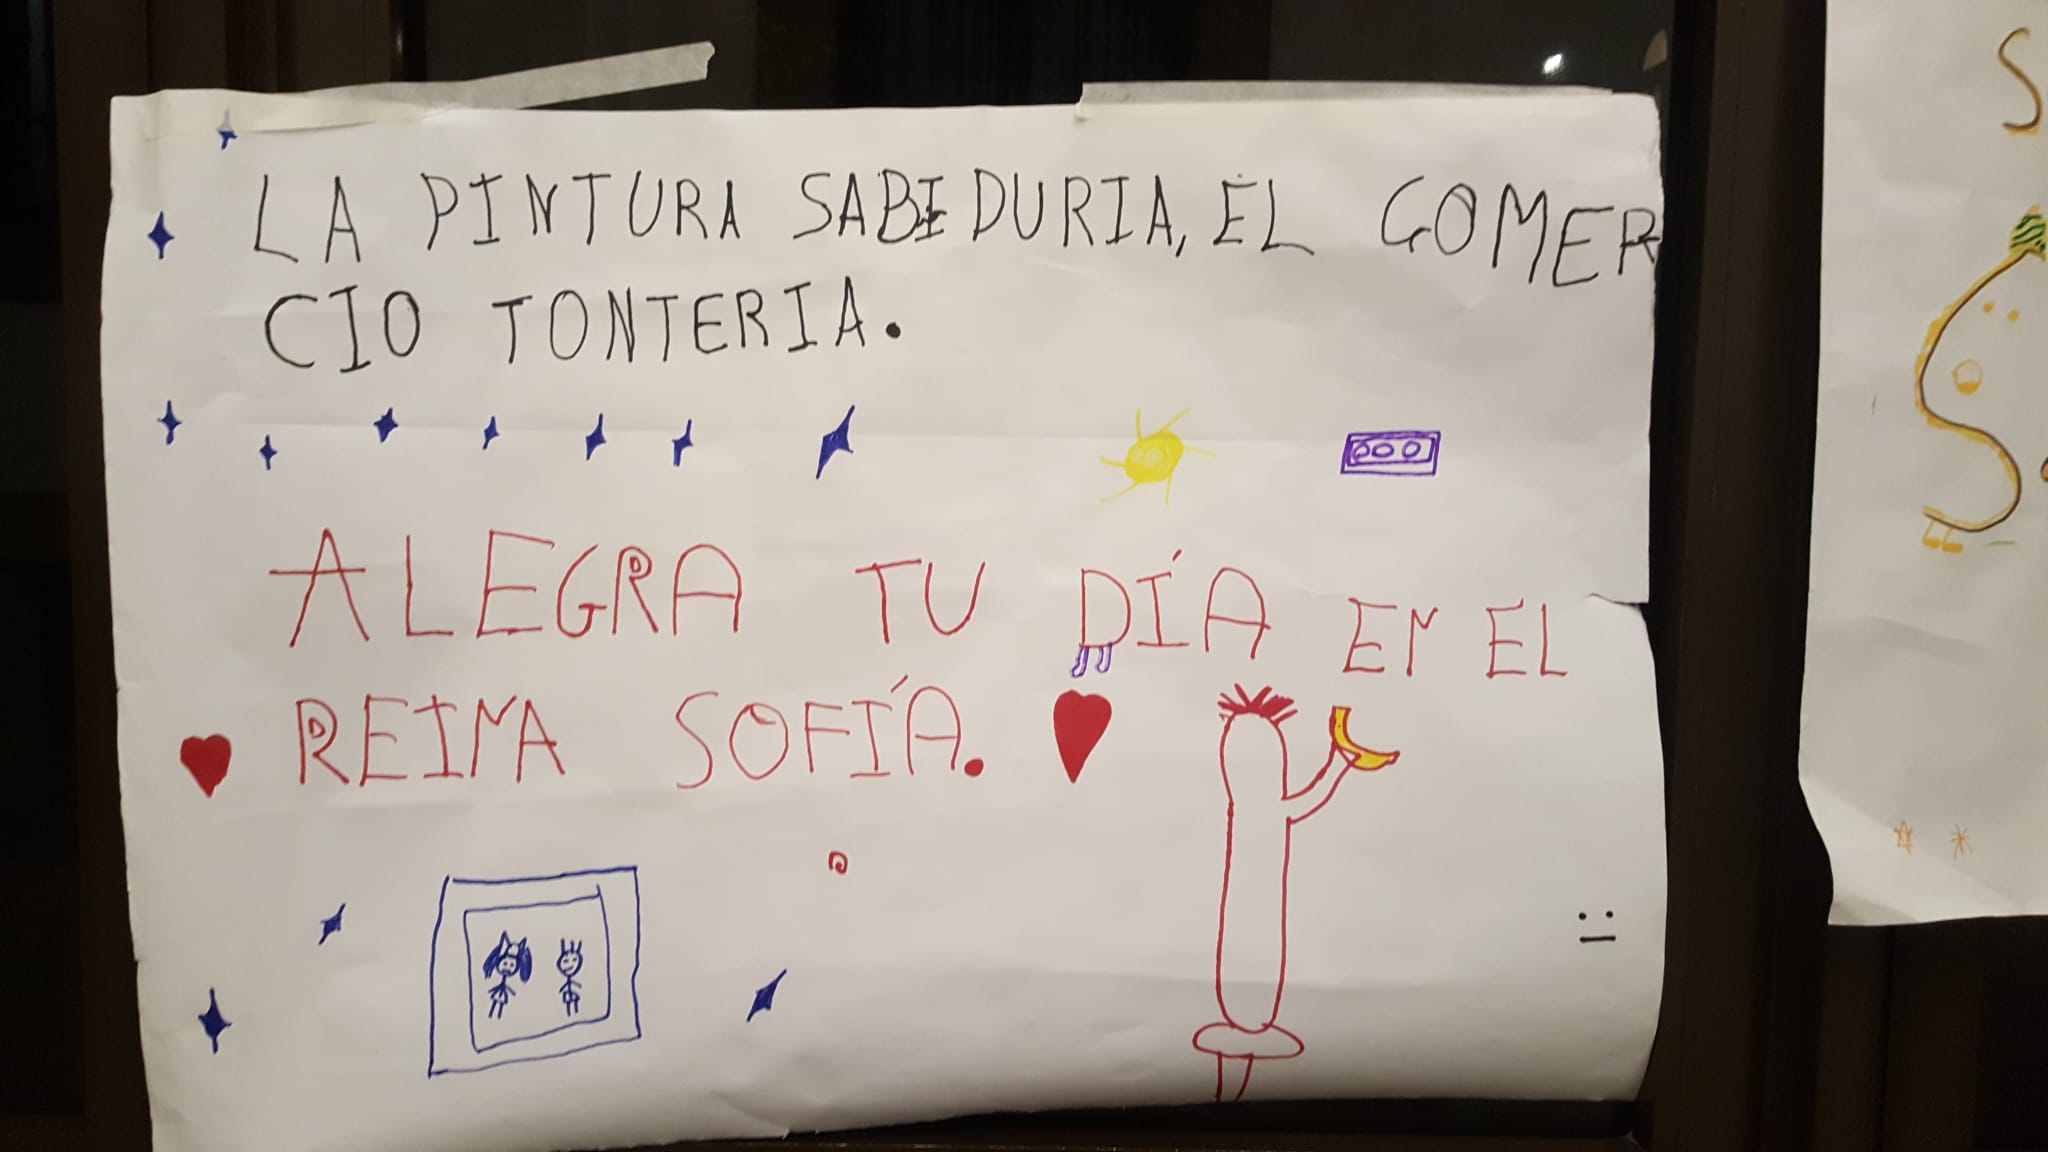 LA PINTURA SABIDURIA, EL COMER
CIO TONTERIA.
ALEGRA TU DÍA EN EL
REINA SOFÍA.
S